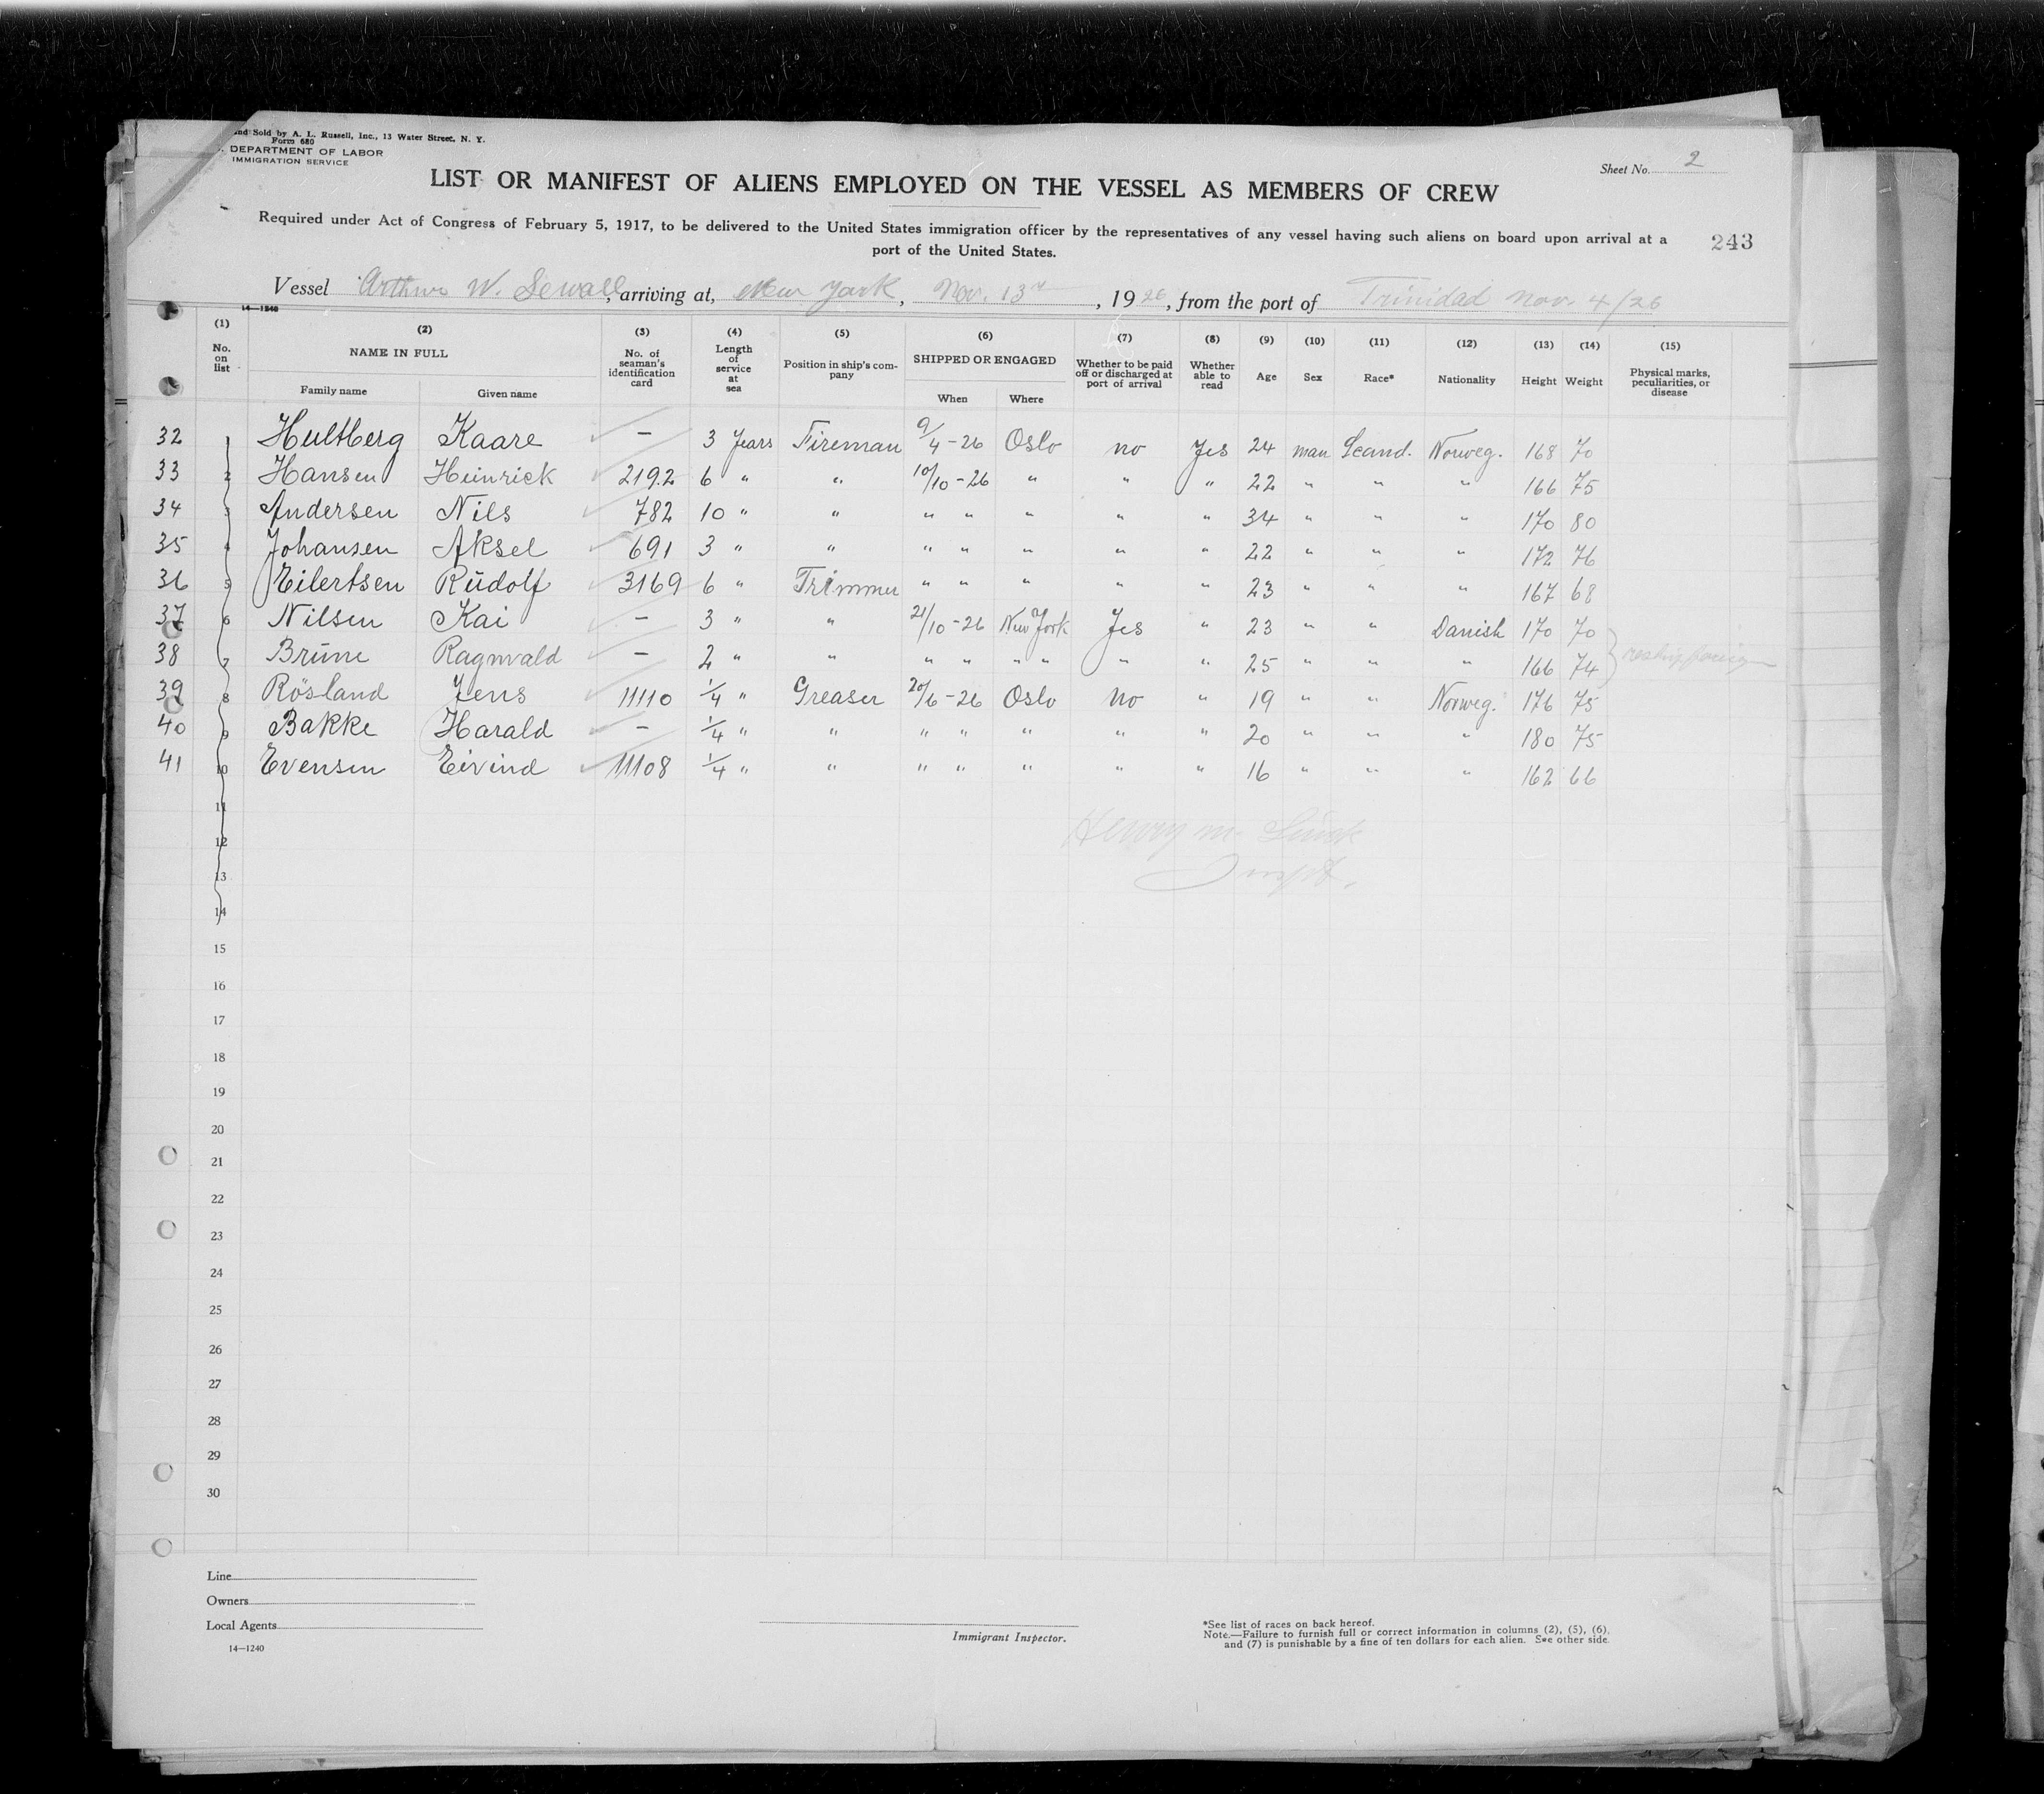 and Sold by A. L. Russell, Inc., 13 Water Street, N. Y.
Form 680
. DEPARTMENT OF LABOR
IMMIGRATION SERVICE
Sheet No. 2
LIST OR MANIFEST OF ALIENS EMPLOYED ON THE VESSEL AS MEMBERS OF CREW
Required under Act of Congress of February 5, 1917, to be delivered to the United States immigration officer by the representatives of any vessel having such aliens on board upon arrival at a
port of the United States.
243
Vessel Arthur W. Sewall, arriving at, New York, Nov. 13, 1926, from the port of Trinidad Nov. 4/26
14—1240
(1) (2) (3) (4) (5) (6) (7) (8) (9) (10) (11) (12) (13) (14) (15)
No. on list NAME IN FULL Family name Given name No. of seaman's identification card Length of service at sea Position in ship's company SHIPPED OR ENGAGED When Where Whether to be paid off or discharged at port of arrival Whether able to read Age Sex Race* Nationality Height Weight Physical marks, peculiarities, or disease
32 1 Hultberg Kaare — 3 Years Fireman 9/4-26 Oslo no Yes 24 man Scand. Norweg. 168 70
33 2 Hansen Heinrick 2192 6 " " 10/10-26 " " " 22 " " " 166 75
34 3 Andersen Nils 782 10 " " " " " " " 34 " " " 170 80
35 4 Johansen Aksel 691 3 " " " " " " " 22 " " " 172 76
36 5 Eilertsen Rudolf 3169 6 " Trimmer " " " " " 23 " " " 167 68
37 6 Nilsen Kai — 3 " " 21/10-26 New York Yes " 23 " " Danish 170 70
38 7 Brüne Ragnvald — 2 " " " " " " " " 25 " " " 166 74
39 8 Rösland Jens 11110 1/4 " Greaser 20/6-26 Oslo no " 19 " " Norweg. 176 75
40 9 Bakke Harald — 1/4 " " " " " " " 20 " " " 180 75
41 10 Evensen Eivind 11108 1/4 " " " " " " " 16 " " " 162 66
11
12 Henry M.
13
14
15
16
17
18
19
20
21
22
23
24
25
26
27
28
29
30
Line
Owners
Local Agents
14—1240
Immigrant Inspector.
*See list of races on back hereof.
Note.—Failure to furnish full or correct information in columns (2), (5), (6),
and (7) is punishable by a fine of ten dollars for each alien. See other side.